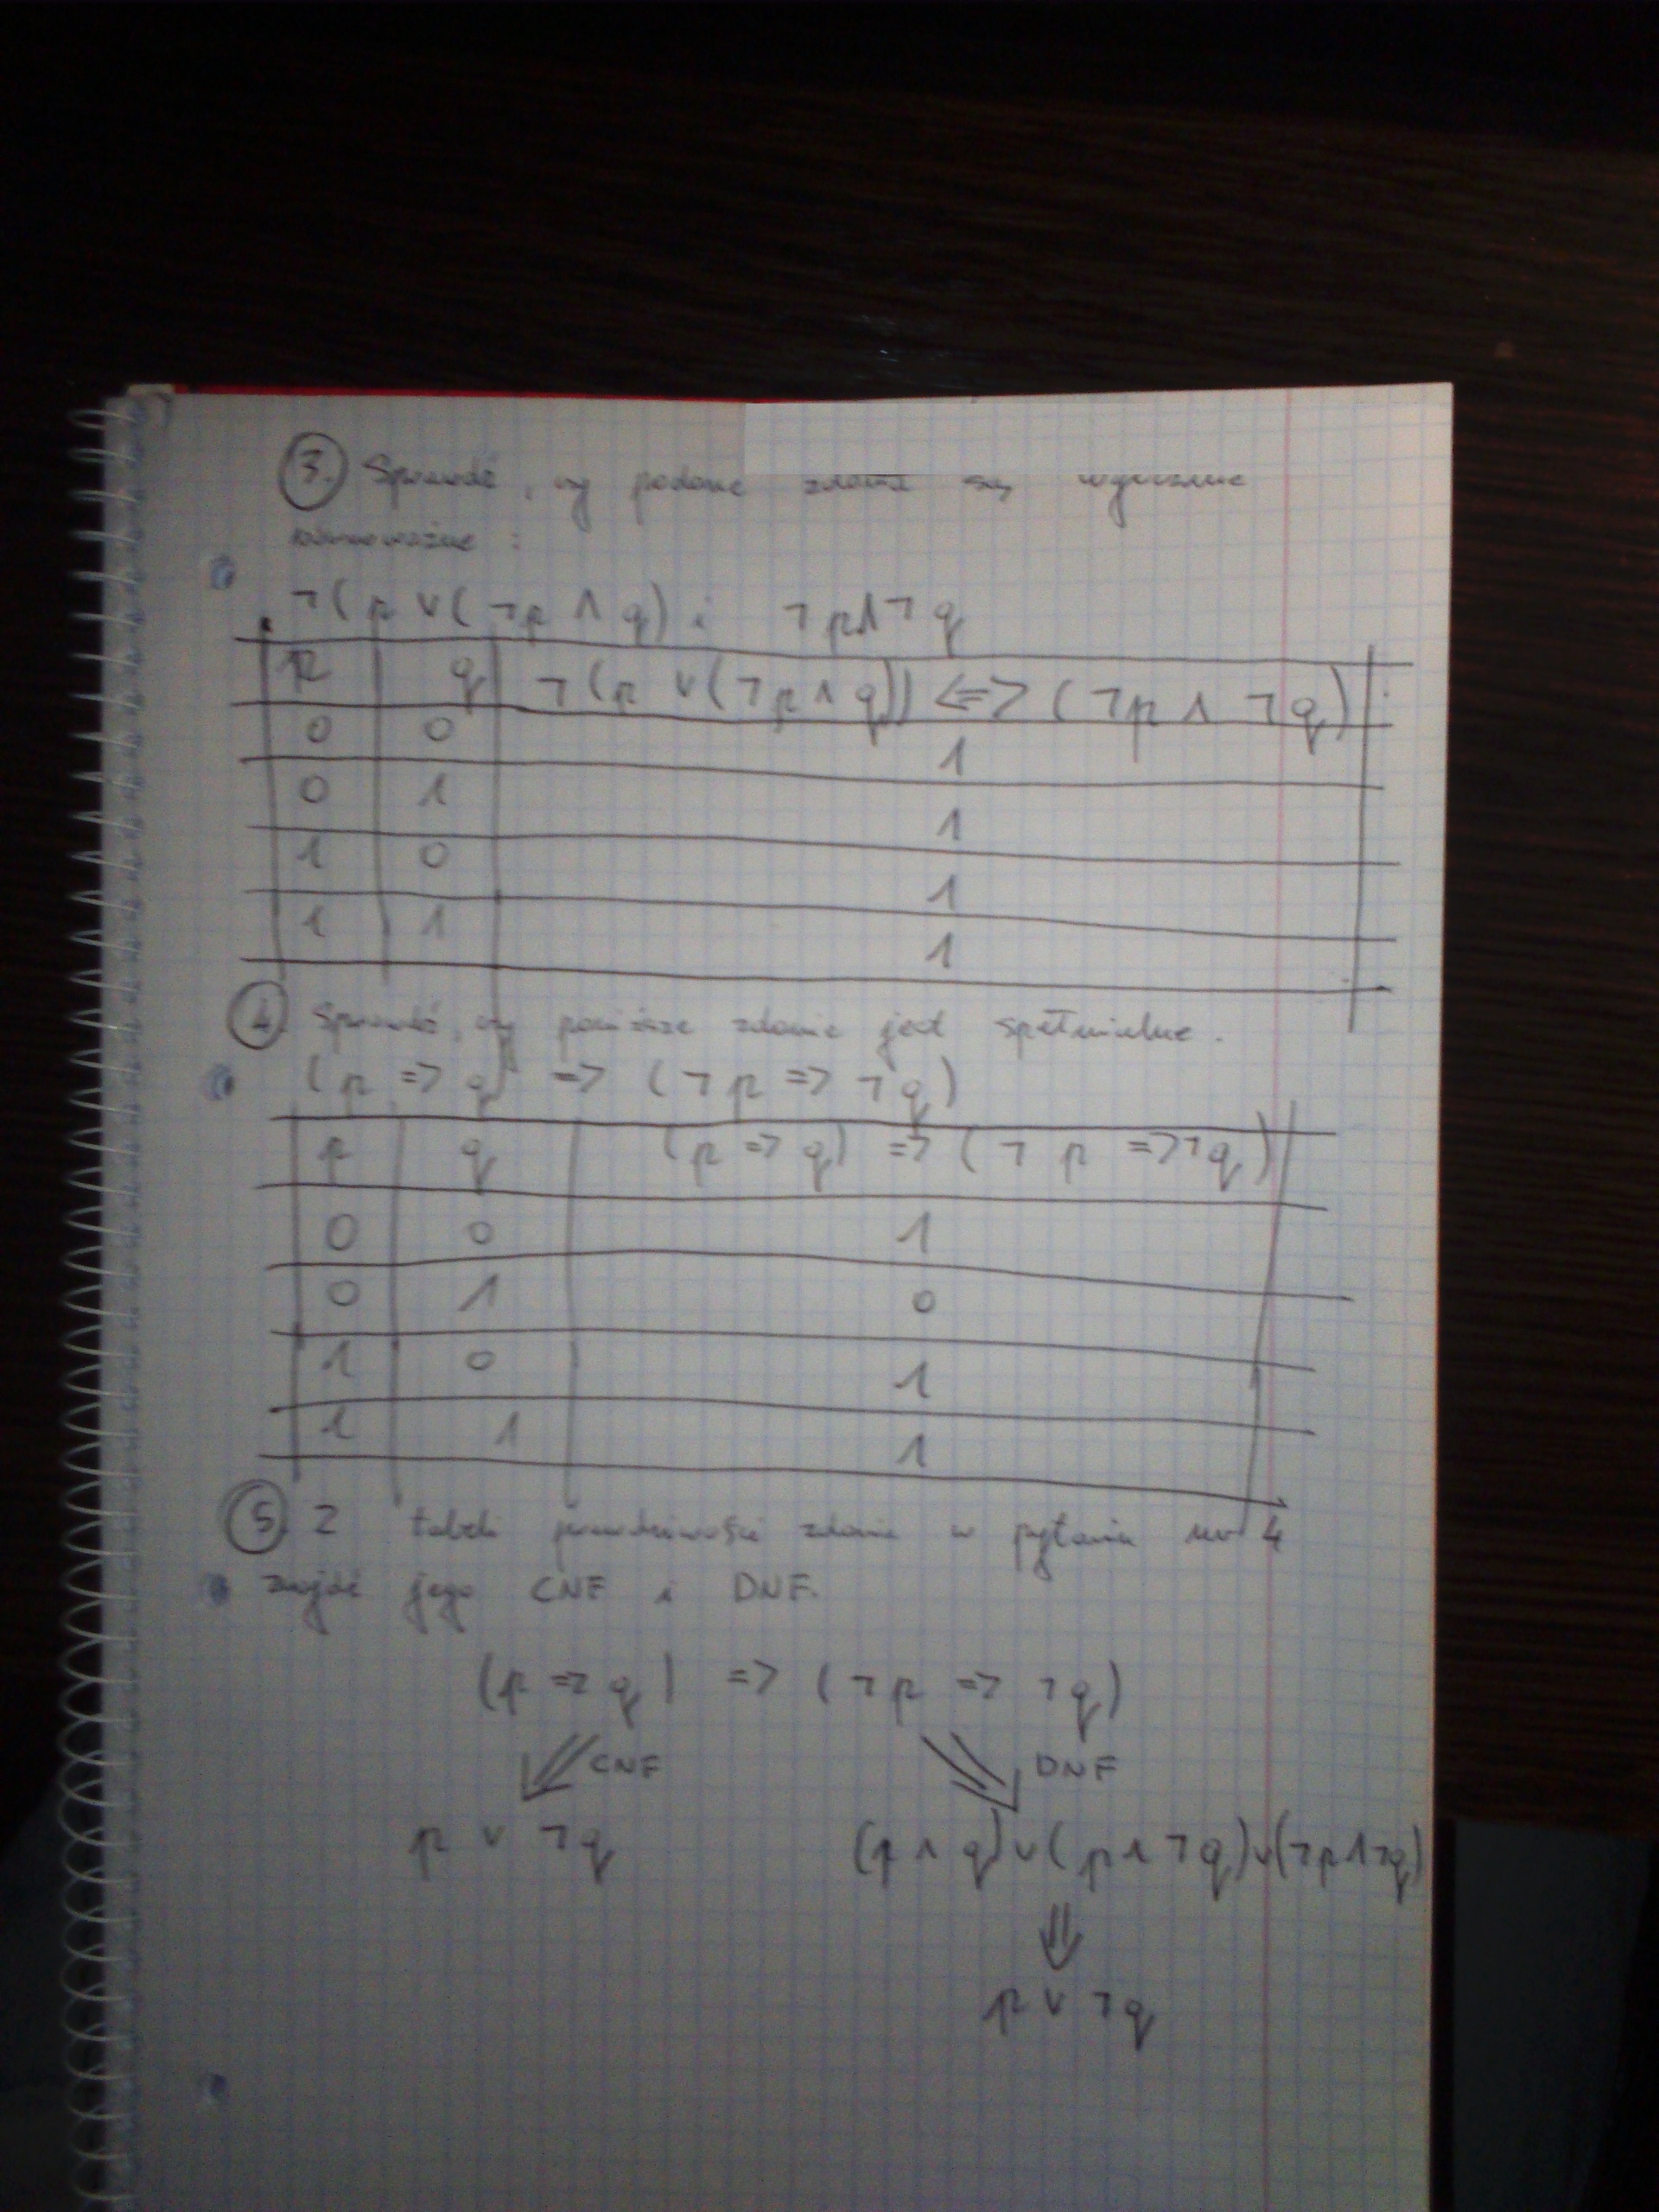 3. Sprawdź, czy podane zdania są
równoważne :
¬(p ∨ (¬p ∧ q) i ¬p∧¬q
p q ¬(p ∨ (¬p ∧ q)) <=> (¬p ∧ ¬q)
0 0 1
0 1 1
1 0 1
1 1 1
4 Sprawdź, czy poniższe zdanie jest spełnialne.
(p => q) => (¬p => ¬q)
p q (p => q) => (¬p => ¬q)
0 0 1
0 1 0
1 0 1
1 1 1
5 Z tabeli prawdziwości zdania w pytaniu nr 4
znajdź jego CNF i DNF.
(p => q) => (¬p => ¬q)
CNF DNF
p ∨ ¬q (p ∧ q)∨(p∧¬q)∨(¬p∧¬q)
p ∨ ¬q